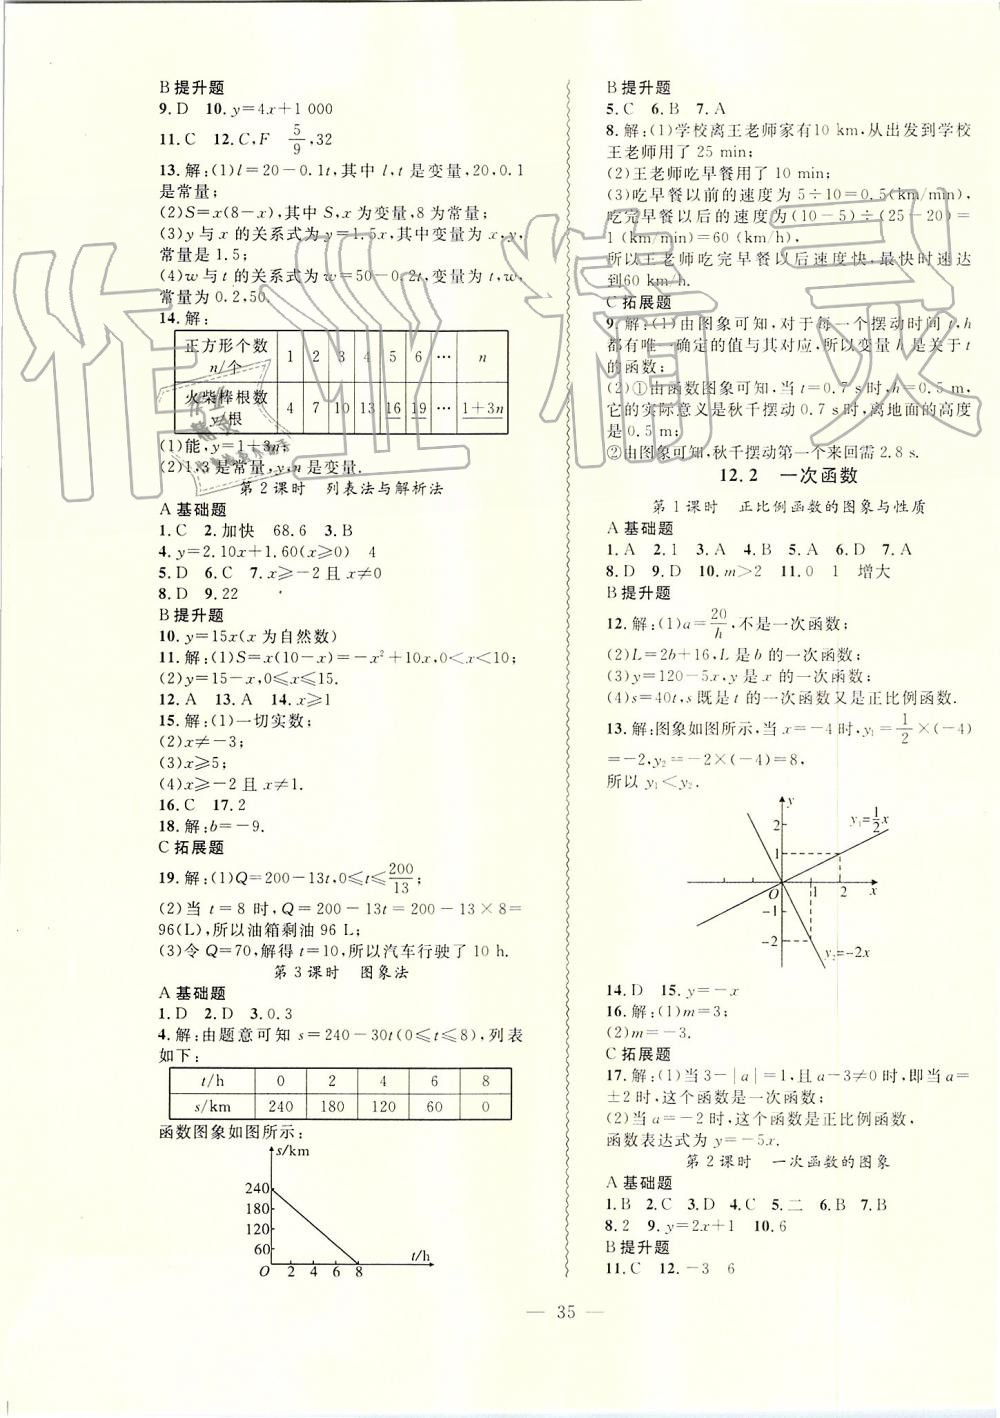 B提升题
9.D 10.y=4x+1 000
11.C 12.C,F 5/9,32
13.解:(1)l=20-0.1t,其中l,t是变量,20,0.1
是常量;
(2)S=x(8-x),其中S,x为变量,8为常量;
(3)y与x的关系式为y=1.5x,其中变量为x,y,
常量是1.5;
(4)w与t的关系式为w=50-0.2t,变量为t,w,
常量为0.2,50.
14.解:
正方形个数n/个 1 2 3 4 5 6 … n
火柴棒根数y/根 4 7 10 13 16 19 … 1+3n
(1)能,y=1+3n;
(2)1,3是常量,y,n是变量.
第2课时 列表法与解析法
A基础题
1.C 2.加快 68.6 3.B
4.y=2.10x+1.60(x≥0) 4
5.D 6.C 7.x≥-2且x≠0
8.D 9.22
B提升题
10.y=15x(x为自然数)
11.解:(1)S=x(10-x)=-x²+10x,0<x<10;
(2)y=15-x,0≤x≤15.
12.A 13.A 14.x≥1
15.解:(1)一切实数;
(2)x≠-3;
(3)x≥5;
(4)x≥-2且x≠1.
16.C 17.2
18.解:b=-9.
C拓展题
19.解:(1)Q=200-13t,0≤t≤200/13;
(2)当t=8时,Q=200-13t=200-13×8=
96(L),所以油箱剩油96 L;
(3)令Q=70,解得t=10,所以汽车行驶了10 h.
第3课时 图象法
A基础题
1.D 2.D 3.0.3
4.解:由题意可知s=240-30t(0≤t≤8),列表
如下:
t/h 0 2 4 6 8
s/km 240 180 120 60 0
函数图象如图所示:
s/km
240
180
120
60
O 2 4 6 8 t/h
B提升题
5.C 6.B 7.A
8.解:(1)学校离王老师家有10 km,从出发到学校
王老师用了25 min;
(2)王老师吃早餐用了10 min;
(3)吃早餐以前的速度为5÷10=0.5(km/min),
吃完早餐以后的速度为(10-5)÷(25-20)=
1(km/min)=60(km/h),
所以王老师吃完早餐以后速度快,最快时速达
到60 km/h.
C拓展题
9.解:(1)由图象可知,对于每一个摆动时间t,h
都有唯一确定的值与其对应,所以变量h是关于t
的函数;
(2)①由函数图象可知,当t=0.7 s时,h=0.5 m,
它的实际意义是秋千摆动0.7 s时,离地面的高度
是0.5 m;
②由图象可知,秋千摆动第一个来回需2.8 s.
12.2 一次函数
第1课时 正比例函数的图象与性质
A基础题
1.A 2.1 3.A 4.B 5.A 6.D 7.A
8.D 9.D 10.m>2 11.0 1 增大
B提升题
12.解:(1)a=20/h,不是一次函数;
(2)L=2b+16,L是b的一次函数;
(3)y=120-5x,y是x的一次函数;
(4)s=40t,s既是t的一次函数又是正比例函数.
13.解:图象如图所示,当x=-4时,y₁=1/2×(-4)
=-2,y₂=-2×(-4)=8,
所以y₁<y₂.
y
2
1
y₁=1/2x
O 1 2 x
-1
-2
y₂=-2x
14.D 15.y=-x
16.解:(1)m=3;
(2)m=-3.
C拓展题
17.解:(1)当3-|a|=1,且a-3≠0时,即当a=
±2时,这个函数是一次函数;
(2)当a=-2时,这个函数是正比例函数,
函数表达式为y=-5x.
第2课时 一次函数的图象
A基础题
1.B 2.C 3.D 4.C 5.二 6.B 7.B
8.2 9.y=2x+1 10.6
B提升题
11.C 12.-3 6
— 35 —
作业精灵